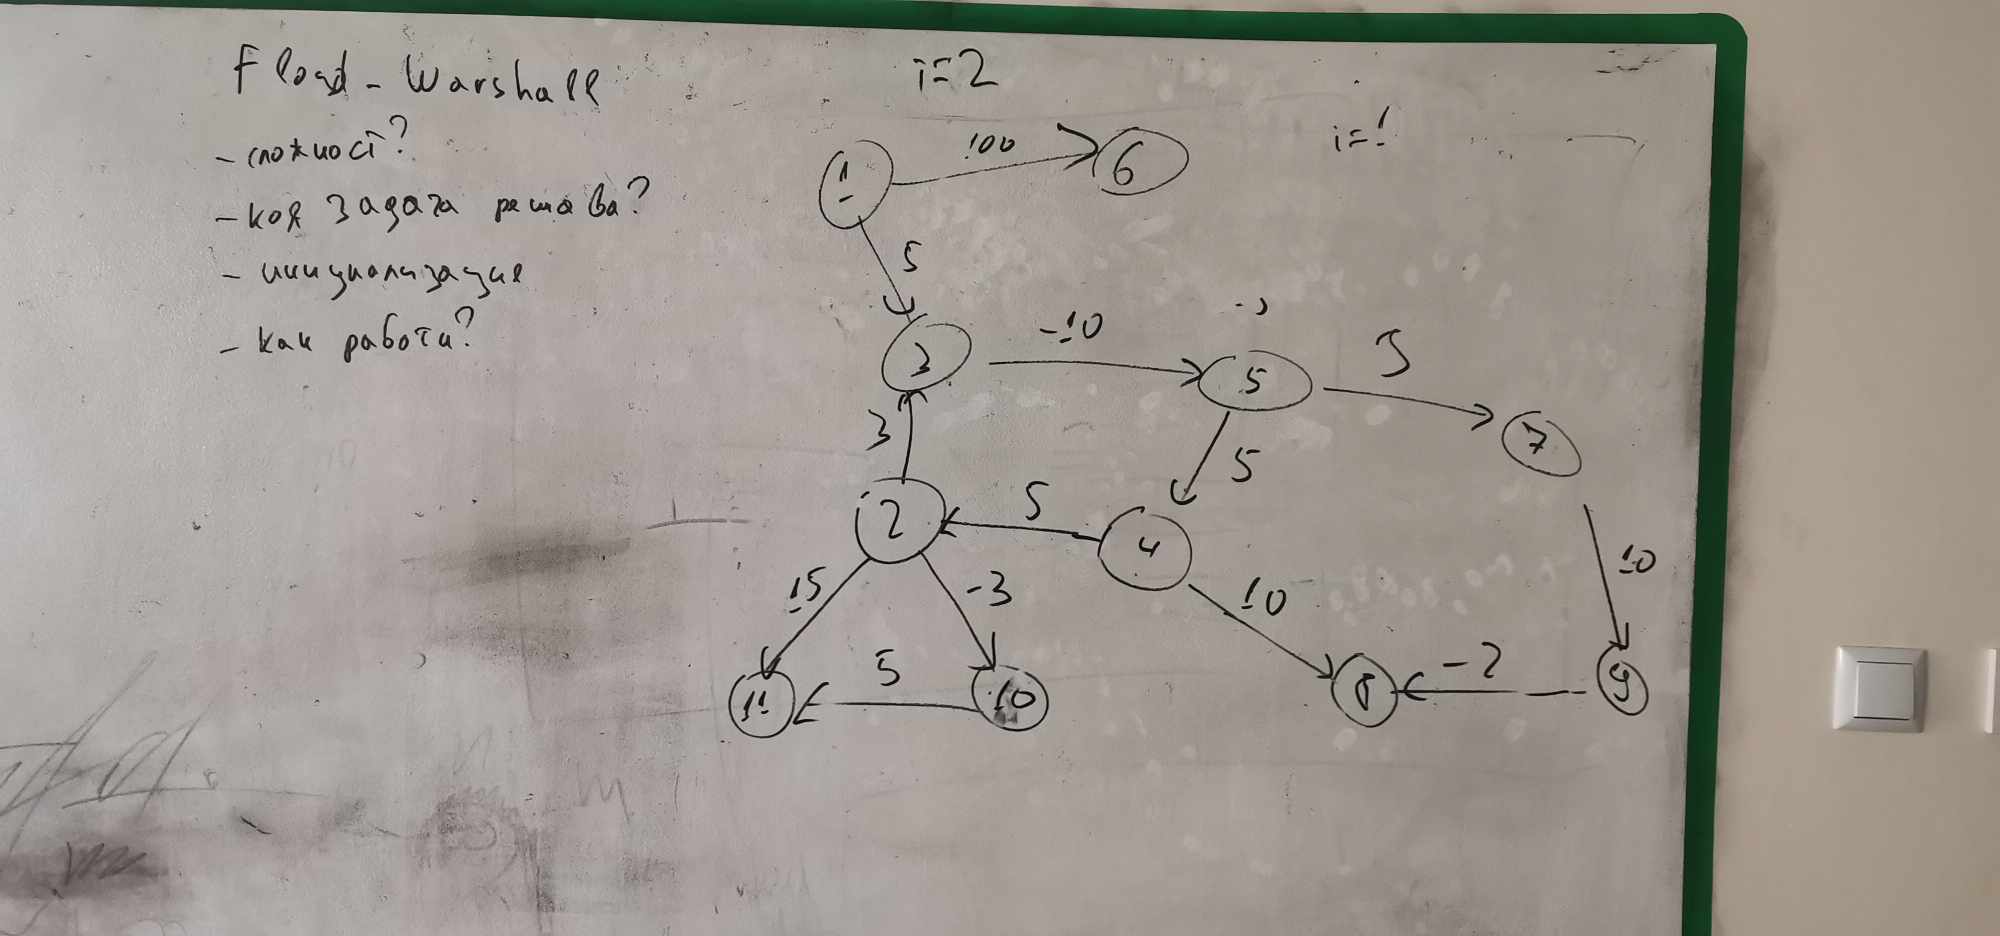 Floyd - Warshall
- сложност?
- коя задача решава?
- инициализация
- как работи?
i=2
i=1
100
1
6
5
-10
3
5
5
7
3
5
5
2
4
10
15
-3
10
5
-2
11
10
8
9